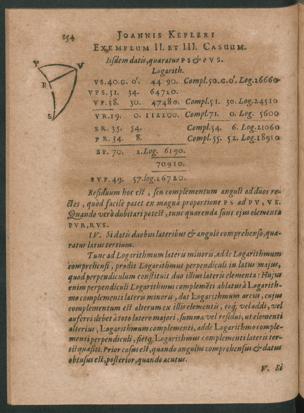 154 JOANNIS KEPLERI
EXEMPLUM II. ET III. CASUUM.
Iisdem datis, quæratur PS & PVS.
Logarith.
P V
R
S
VS. 40. 0. 0'. 44190. Compl. 50. 0'. Log. 26660
VPS. 31. 54. 64710.
VP. 38. 30. 47480. Compl. 51. 30. Log. 24510
VR. 19. 0 112200. Compl. 71. 0. Log. 5600
SR. 35. 54. Compl. 54. 6. Log. 21060
PR. 34. 8. Compl. 55. 52. Log. 18910
SP. 70. 2. Log. 6190.
70910.
PVP. 49. 57. log. 26720.
Residuum hoc est, seu complementum anguli ad duos rectos, quod facile patet ex magna proportione PS ad PV, VS.
Quando verò dubitari potest, tunc quærenda sunt ejus elementa
PVR, RVS.
IV. Si datis duobus lateribus & angulo comprehenso, quæratur latus tertium.
Tunc ad Logarithmum lateris minoris adde Logarithmum
comprehensi, prodit Logarithmus perpendiculi in latus majus,
quod perpendiculum constituit duo illius lateris elementa: Hujus
enim perpendiculi Logarithmum complemēti ablatus à Logarithmo complementi lateris minoris, dat Logarithmum arcus, cujus
complementum est alterum ex illis elementis, eoq; vel addi, vel
auferri debet à toto latere majori, summæ vel residui, ut elementi
alterius, Logarithmum complementi, adde Logarithmo complementi perpendiculi, fietq; Logarithmus complementi lateris tertii quæsiti. Prior casus est, quando angulus comprehensus & datus
obtusus est, posterior, quando acutus.
V. Si